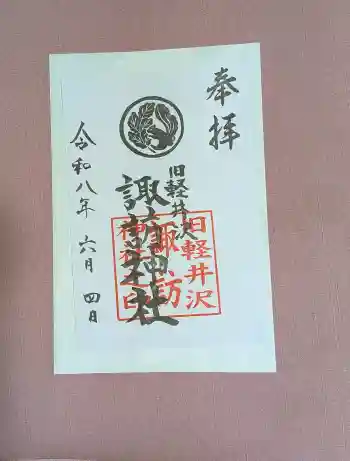 奉拝
旧軽井沢
諏訪神社
旧軽井沢
諏訪
神社之印
令和八年 六月 四日